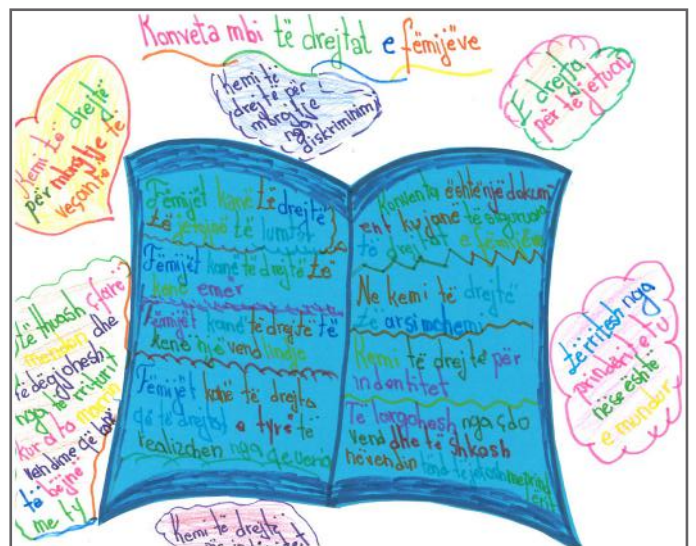 Konveta mbi të drejtat e fëmijëve
Kemi të
drejtë për
mbrojtje
nga
diskriminim
E drejta
për të jetuar
Kemi të drejtë
për mbrojtje të
veçantë
Fëmijët kanë të drejtë
të jetojnë të lumtur
Fëmijët kanë të drejtë të
kenë emër
Fëmijët kanë të drejtë të
kenë një vend lindje
Fëmijët kanë të drejta
që të drejtat e tyre të
realizohen nga qeveria
Konventa është një dokum
ent ky janë të siguruara
të drejtat e fëmijëve
Ne kemi të drejtë
të arsimohemi
Kemi të drejtë për
indentitet
Të largohesh nga çdo
vend dhe të shkosh
në vendin tënd të jetosh me prind
ërit
të thuash çfarë
mendon dhe
të dëgjohesh
nga të rriturit
kur ata marrin
vendime që kanë
të bëjnë
me ty
të rritesh nga
prindërit e tu
nëse është
e mundur
Kemi të drejtë